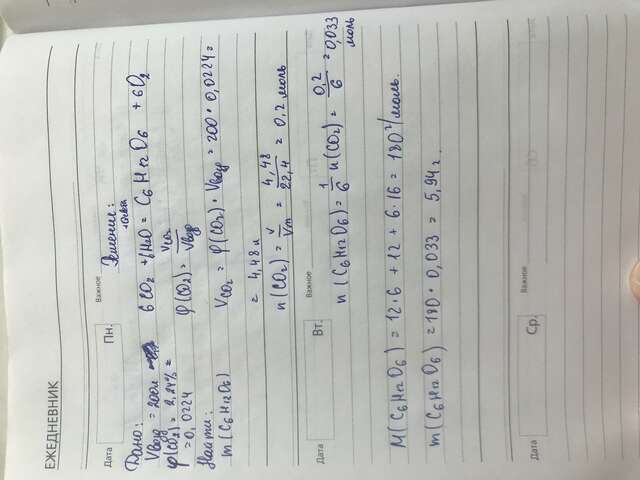 ЕЖЕДНЕВНИК
Дата
Пн.
Важное
Дано:
Vвозд = 200л
φ(CO2) = 2,24% =
= 0,0224
Найти:
m(C6H12O6)
Решение:
6CO2 + 6H2O = C6H12O6 + 6O2
φ(CO2) = VCO2 / Vвозд
VCO2 = φ(CO2) · Vвозд = 200 · 0,0224 =
= 4,48 л
n(CO2) = V / Vm = 4,48 / 22,4 = 0,2 моль
Дата
Вт.
Важное
n(C6H12O6) = 1/6 n(CO2) = 0,2 / 6 = 0,033
моль
M(C6H12O6) = 12·6 + 12 + 6·16 = 180 г/моль.
m(C6H12O6) = 180 · 0,033 = 5,94 г.
Дата
Ср.
Важное